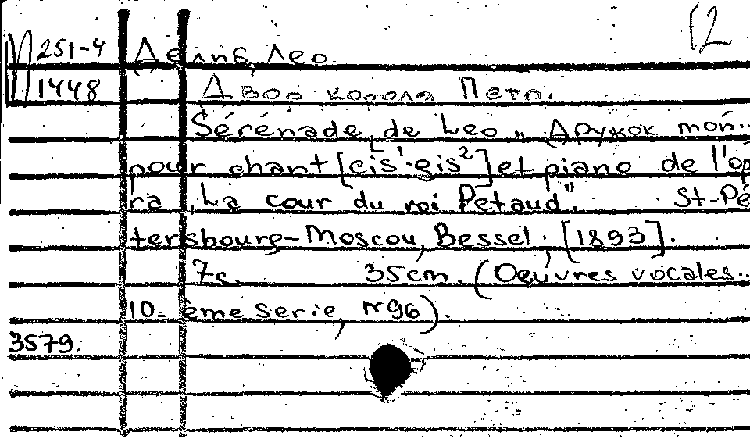 12
П 251-4 Делиб, Лео.
1448 Двор короля Пето.
Sérénade de Leo „Дружок мой...
pour chant [cis¹-gis²] et piano de l'op
ra „La cour du roi Petaud". St-Pé
tersbourg-Moscou, Bessel, [1893].
7c. 35cm. (Oeuvres vocales...
10-ème serie, №96).
3579.